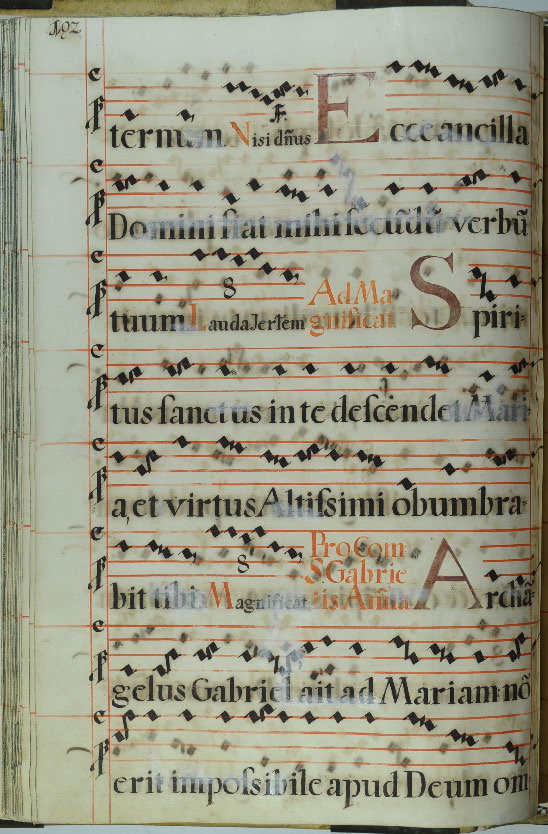 192
ternum Nisi dñus Ecce ancilla
Domini fiat mihi secũdũ verbũ
tuum 8 Lauda Jerſem Ad Ma
gnificat Spiri-
tus ſanctus in te deſcendet Mari-
a, et virtus Altiſsimi obumbra-
bit tibi 8 Magnificat Pro Com
S Gabrie
lis Añna Archã-
gelus Gabriel ait ad Mariam nõ
erit impoſsibile apud Deum om